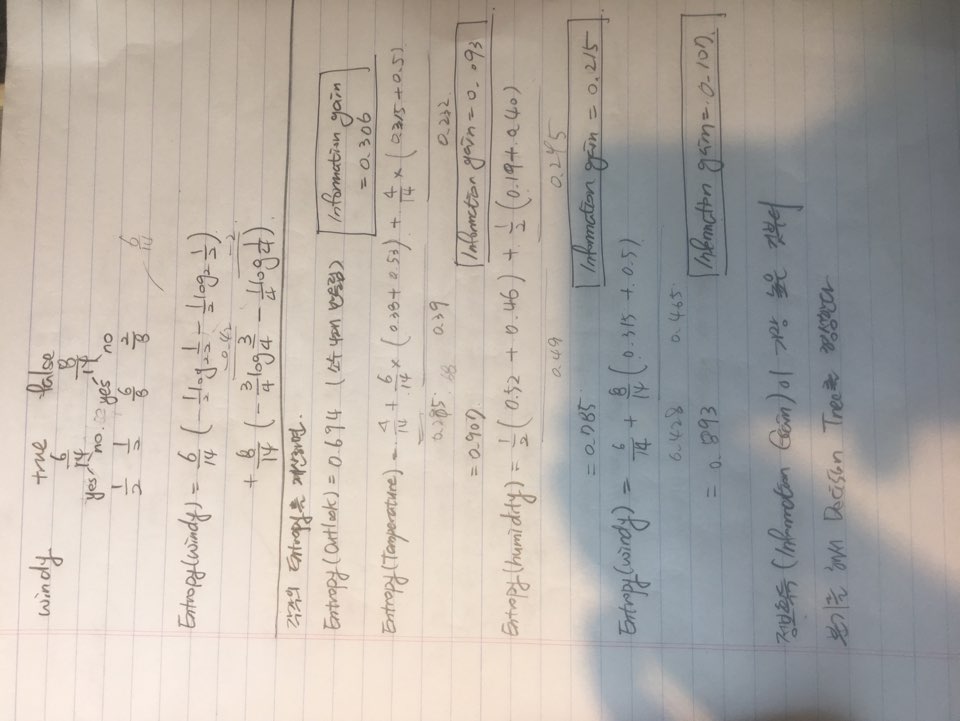 windy true false
6/14 8/14
yes no yes no
1/2 1/2 6/8 2/8
6/14
Entropy(windy) = 6/14 (-1/2 log₂ 1/2 - 1/2 log₂ 1/2)
-0.42 -2
+ 8/14 (-3/4 log 3/4 - 1/4 log 1/4)
각각의 Entropy를 계산하면.
Entropy(Outlook) = 0.694 (소수 4째 반올림) Information gain
= 0.306
Entropy(Temperature) = 4/14 + 6/14 × (0.38 + 0.53) + 4/14 × (0.315 + 0.5)
0.285 0.39 0.232
= 0.907 Information gain = 0.093
Entropy(humidity) = 1/2 (0.52 + 0.46) + 1/2 (0.19 + 0.40)
0.49 0.295
= 0.785 Information gain = 0.215
Entropy(windy) = 6/14 + 8/14 (0.315 + 0.5)
0.428 0.465
= 0.893 Information gain = 0.107
정보획득 (Information Gain)이 가장 높은 것부터
분기를 해서 Decision Tree를 형성한다